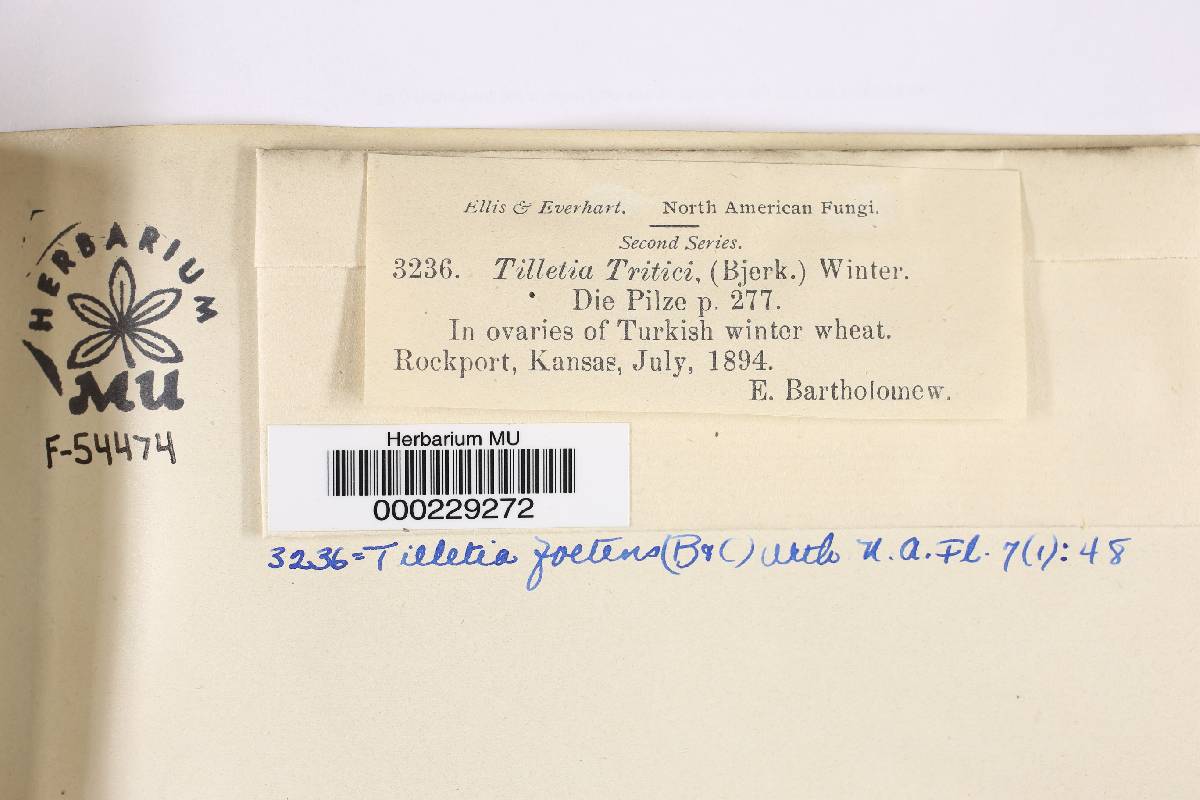 HERBARIUM
MU
F-54474
Ellis & Everhart. North American Fungi.
Second Series.
3236. Tilletia Tritici, (Bjerk.) Winter.
Die Pilze p. 277.
In ovaries of Turkish winter wheat.
Rockport, Kansas, July, 1894.
E. Bartholomew.
Herbarium MU
000229272
3236=Tilletia foetens (B&C) N.A.Fl. 7(1): 48